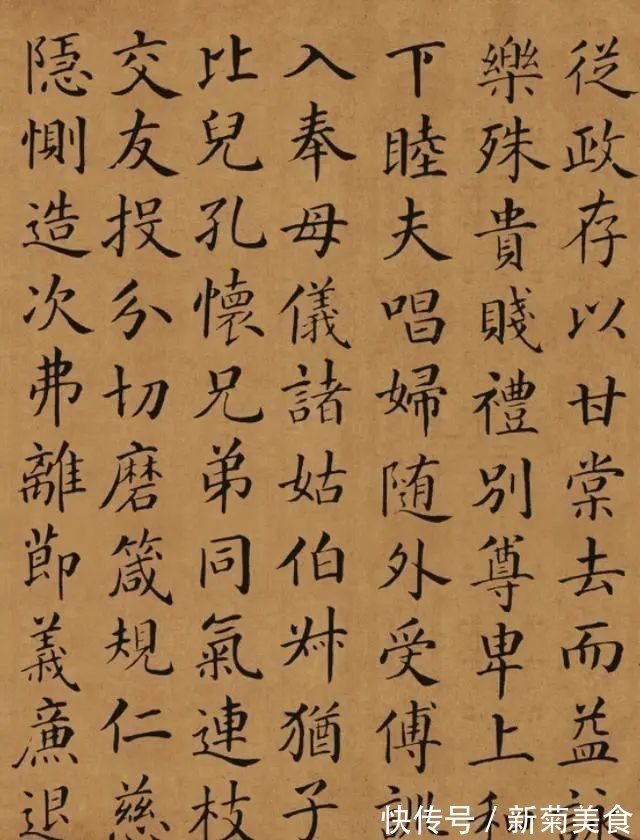 從政存以甘棠去而益詠
樂殊貴賤禮別尊卑上和
下睦夫唱婦随外受傅訓
入奉母儀諸姑伯叔猶子
比兒孔懷兄弟同氣連枝
交友投分切磨箴規仁慈
隱惻造次弗離節義廉退
快传号 / 新菊美食